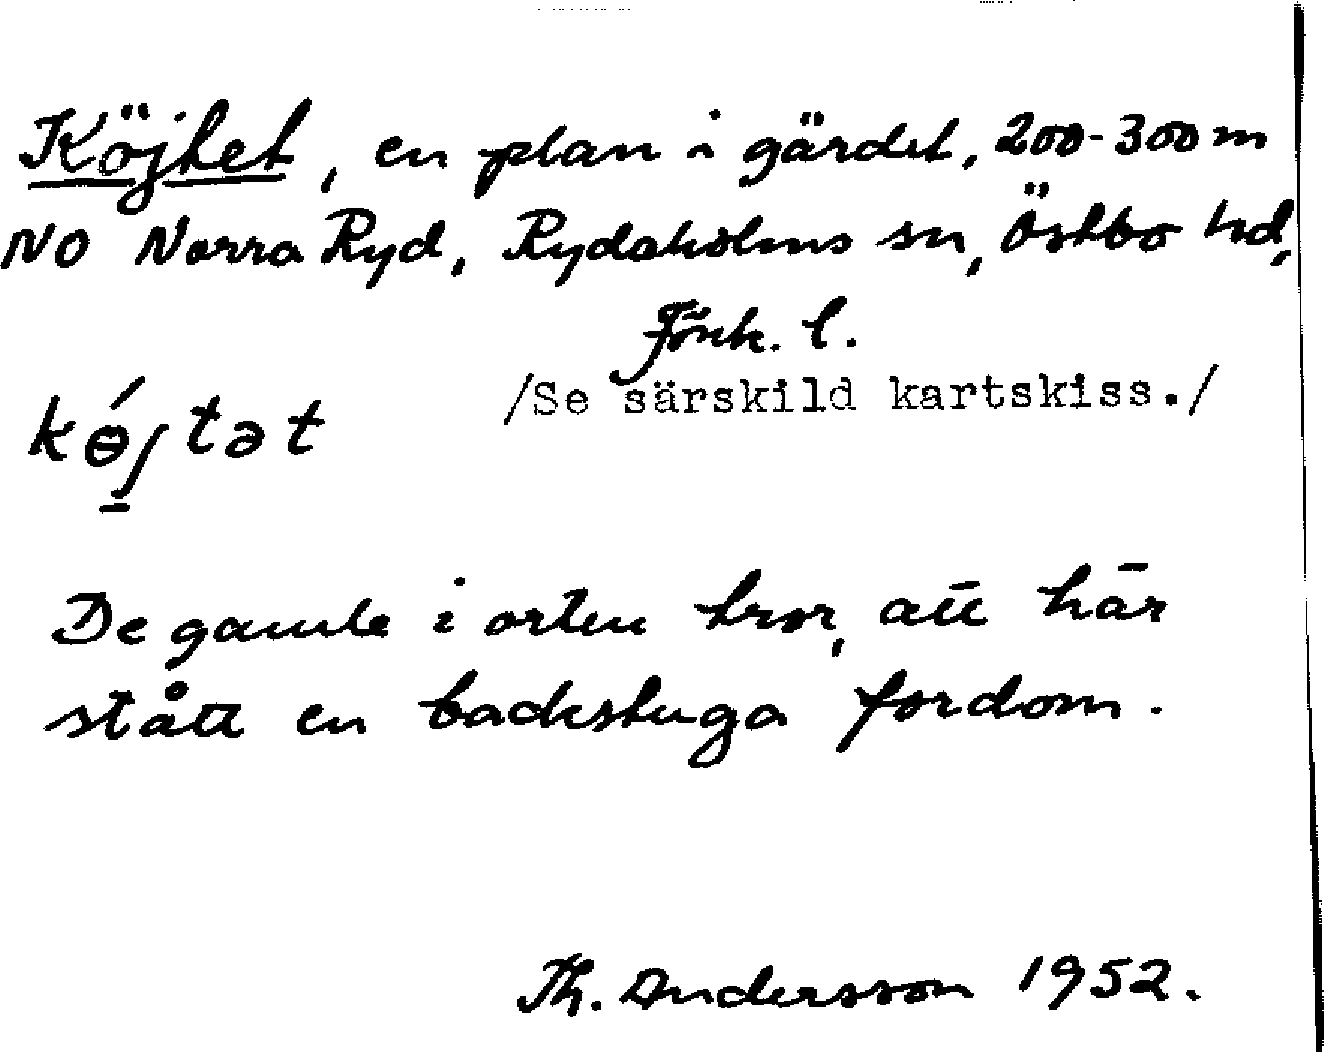 Köjtet, en plan i gärdet, 200-300 m
NO Norra Ryd, Rydaholms sn, Östbo hd,
Jönk. l.
/Se särskild kartskiss./
kɵ́jtət
De gamle i orten tror, att här
stått en backstuga fordom.
Th. Andersson 1952.